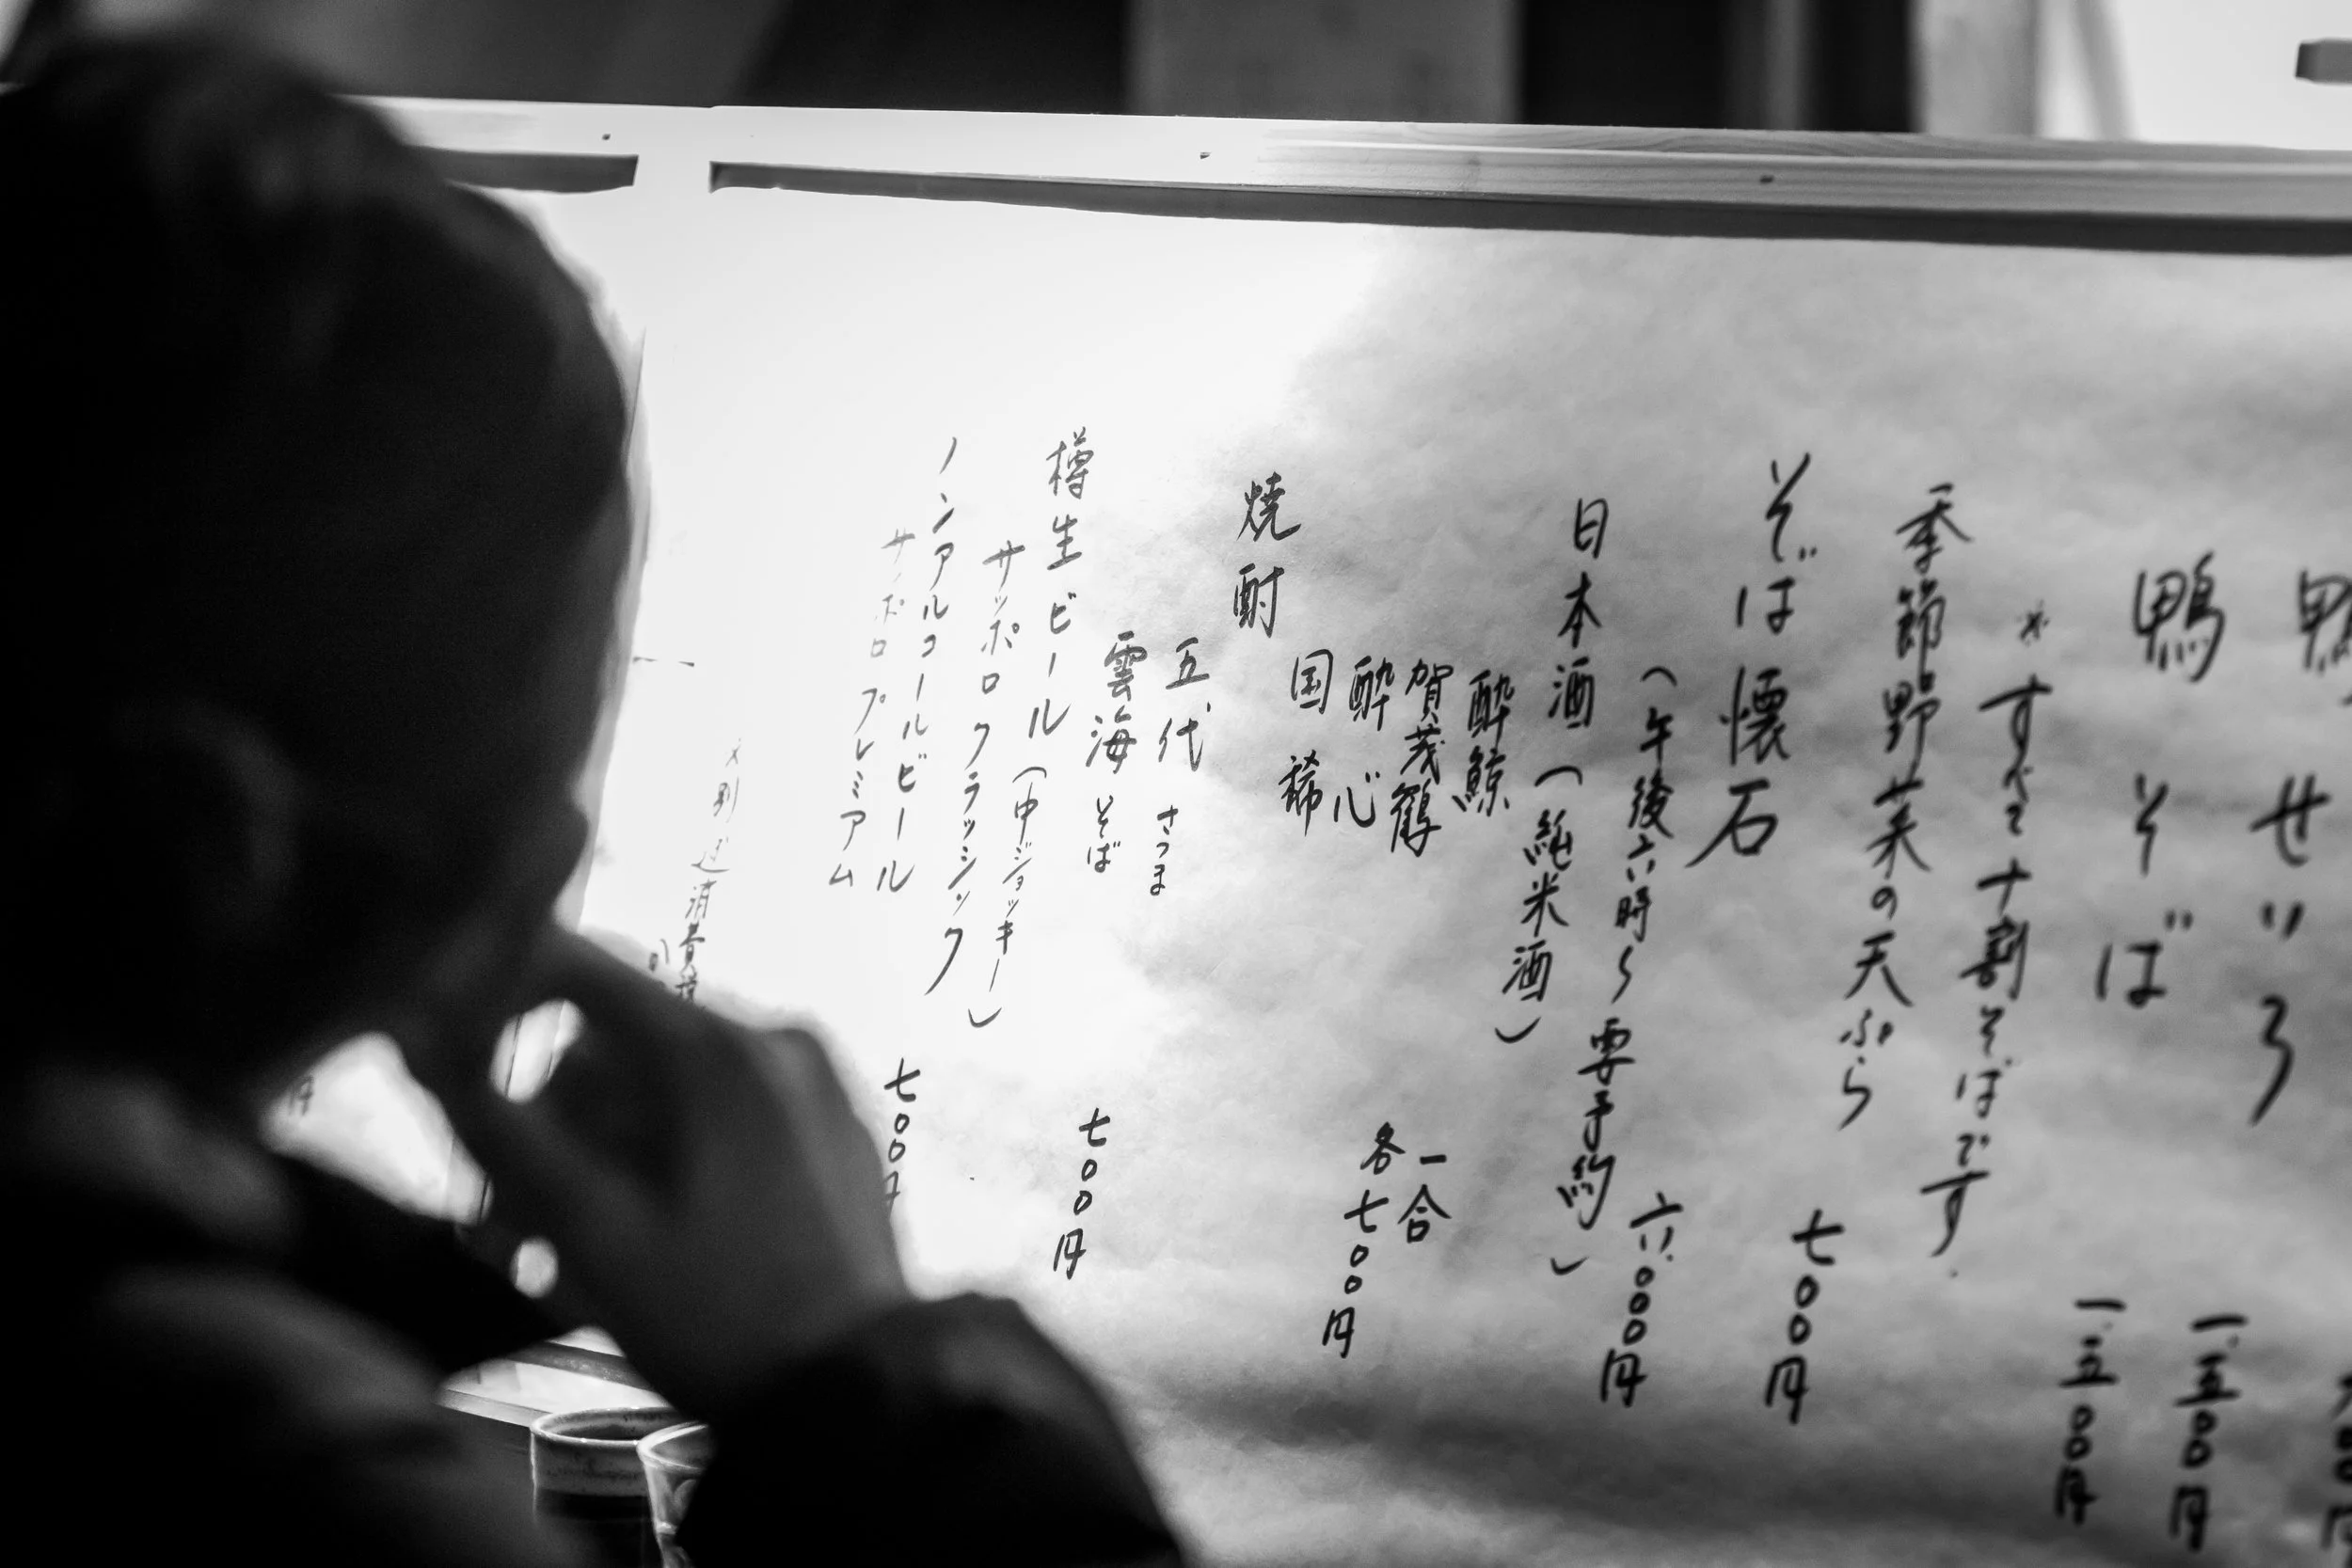 鴨せいろ
一、五〇〇円
鴨そば
一、五〇〇円
*すべて十割そばです
季節野菜の天ぷら
七〇〇円
そば懐石
六、〇〇〇円
(午後六時〜要予約)
日本酒(純米酒)
酔鯨
賀茂鶴
酔心
国稀
一合
各七〇〇円
焼酎
五代 さつま
雲海 そば
七〇〇円
樽生ビール(中ジョッキー)
サッポロクラッシック
七〇〇円
ノンアルコールビール
サッポロプレミアム
別途消費税